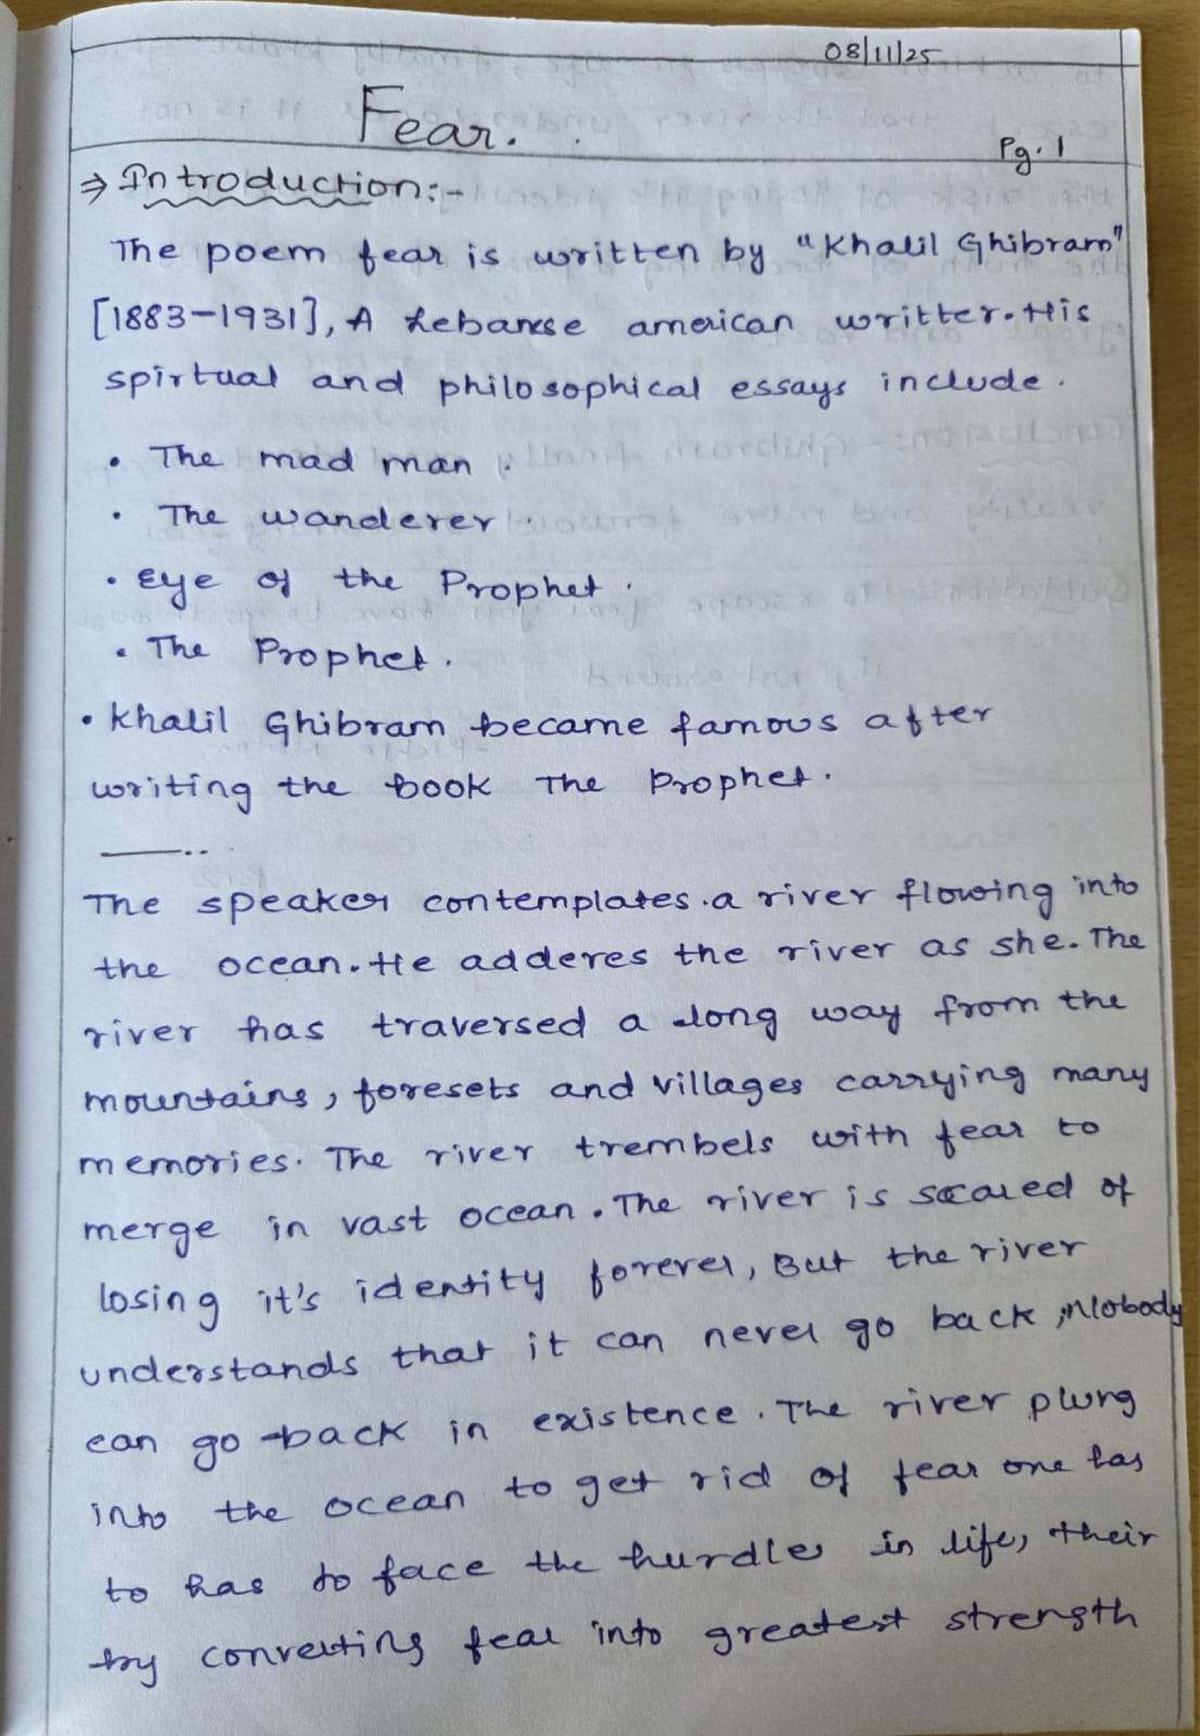 08/11/25
Fear.
Pg. 1
⇒ Introduction:-
The poem fear is written by "Khalil Ghibram"
[1883-1931], A Lebanese american writter. His
spirtual and philosophical essays include.
• The mad man.
• The wanderer.
• Eye of the Prophet.
• The Prophet.
• Khalil Ghibram became famous after
writing the book The Prophet.
The speaker contemplates.a river flowing into
the ocean. He adderes the river as she. The
river has traversed a long way from the
mountains, foresets and villages carrying many
memories. The river trembels with fear to
merge in vast ocean. The river is scared of
losing it's identity forever, But the river
understands that it can never go back, Nobody
can go back in existence. The river plung
into the ocean to get rid of fear one has
to has to face the hurdles in life, their
by converting fear into greatest strength